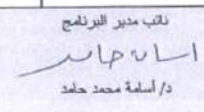 نائب مدير البرنامج
أسامة حامد
د/ أسامة محمد حامد